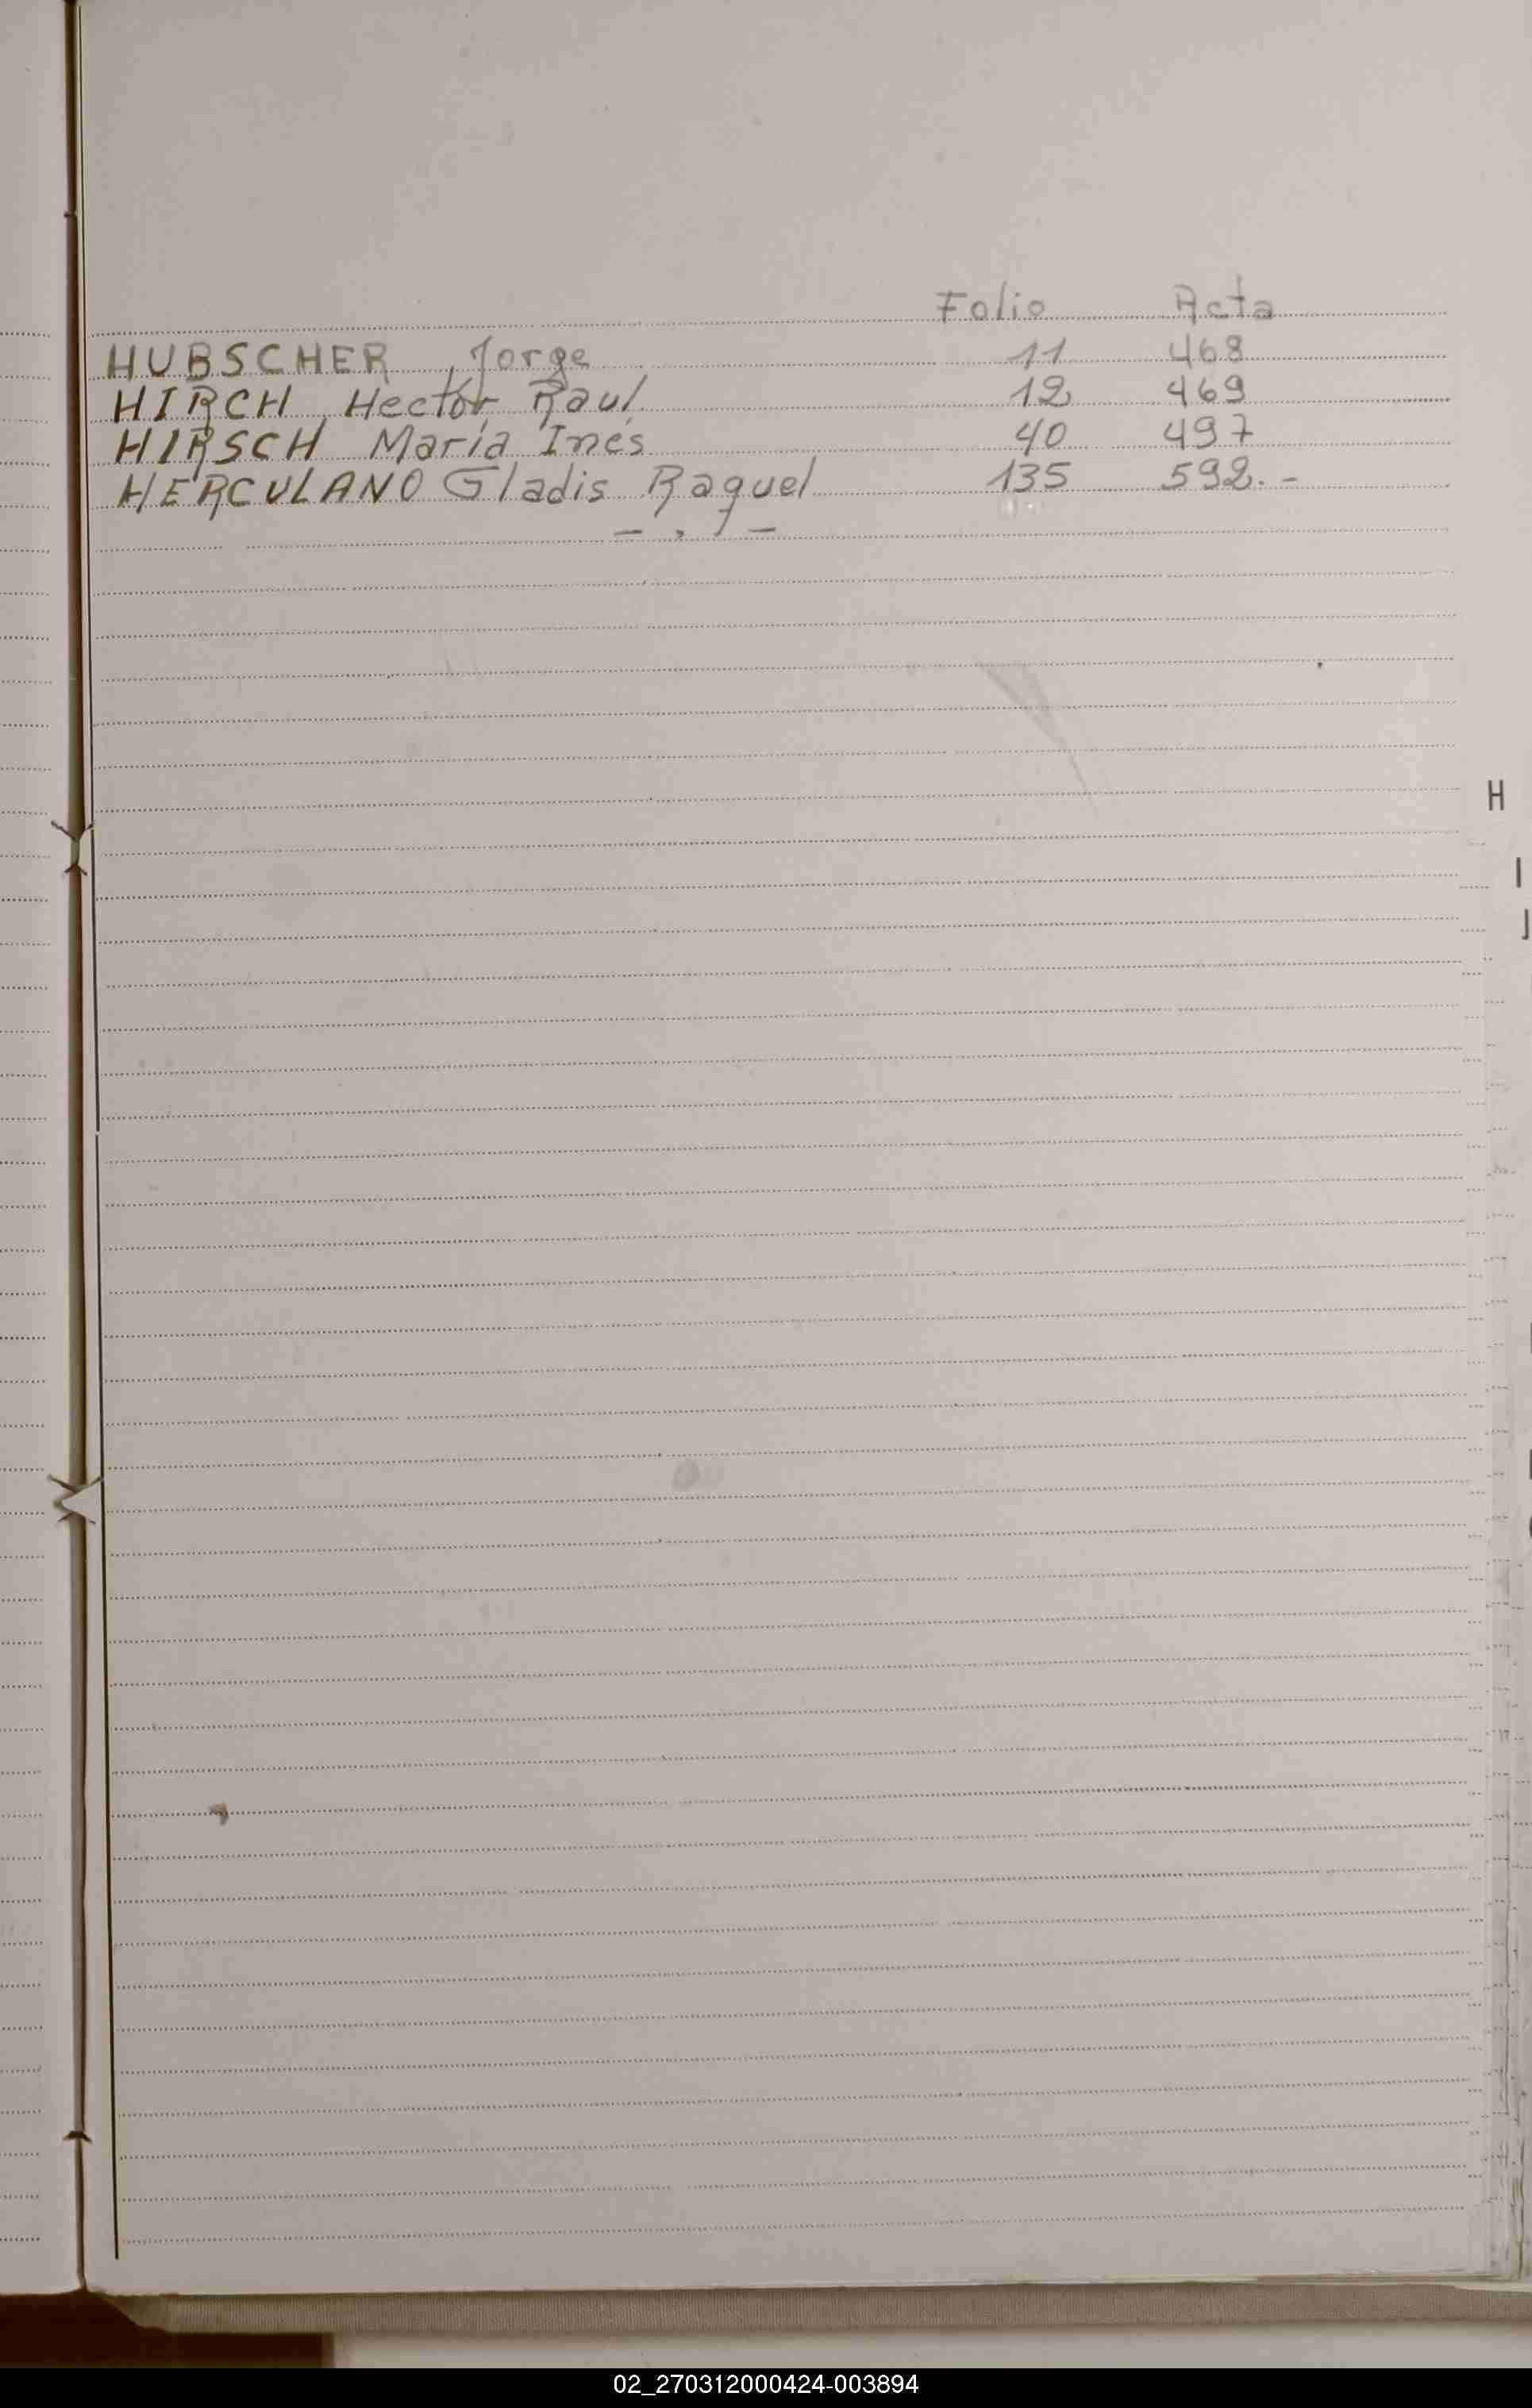 Folio Acta
HUBSCHER, Jorge 11 468
HIRCH, Hector Raul 12 469
HIRSCH María Inés 40 497
HERCULANO Gladis Raquel 135 592.-
H
I
J
02_270312000424-003894